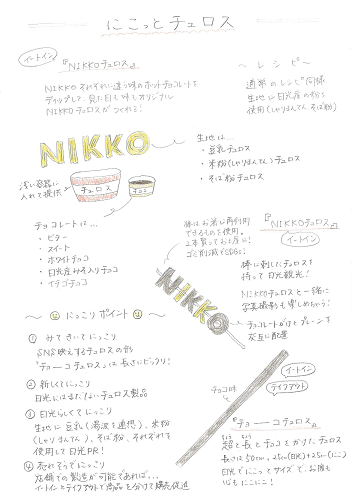 にこっとチュロス
イートイン
『NIKKOチュロス』
NIKKO それぞれに違う味のホットチョコレートを
ディップして、見た目も味もオリジナル
NIKKOチュロスがつくれる!
〜 レシピ 〜
通常のレシピ同様
生地に日光産の粉を
使用(しゃりまんてん、そば粉)
NIKKO
浅い容器に
入れて提供
チュロス
チョコ
生地は…
・豆乳チュロス
・米粉(しゃりまんてん)チュロス
・そば粉チュロス
チョコレートは…
・ビター
・スイート
・ホワイトチョコ
・日光産みそ入りチョコ
・イチゴチョコ
棒はお箸に再利用
できるものを使用。
2本買ってお土産に!
ゴミ削減でSDGs!
『NIKKOチュロス』
イートイン
棒に刺したチュロスを
持って日光観光!
NIKKOチュロスと一緒に
写真撮影も楽しめちゃう!
NIKKO
チョコレートがけとプレーンを
交互に配置
〜 にっこりポイント 〜
① みてきいてにっこり
SNS映えするチュロスの形
「チョーコチュロス」は長さにビックリ!
② 新しくてにっこり
日光にはまだないチュロス製品
③ 日光らしくてにっこり
生地に豆乳(湯波を連想)、米粉
(しゃりまんてん)、そば粉、それぞれを
使用して日光PR!
④ 売れそうでにっこり
店舗での製造が可能であれば…
イートインとテイクアウトで商品を分けて購売促進
チョコ味
イートイン
テイクアウト
『チョーコチュロス』
超と長とチョコをかけたチュロス
長さは50cm。25cm(日光)+25cm(にこ)
日光でにこっとサイズで、お腹も